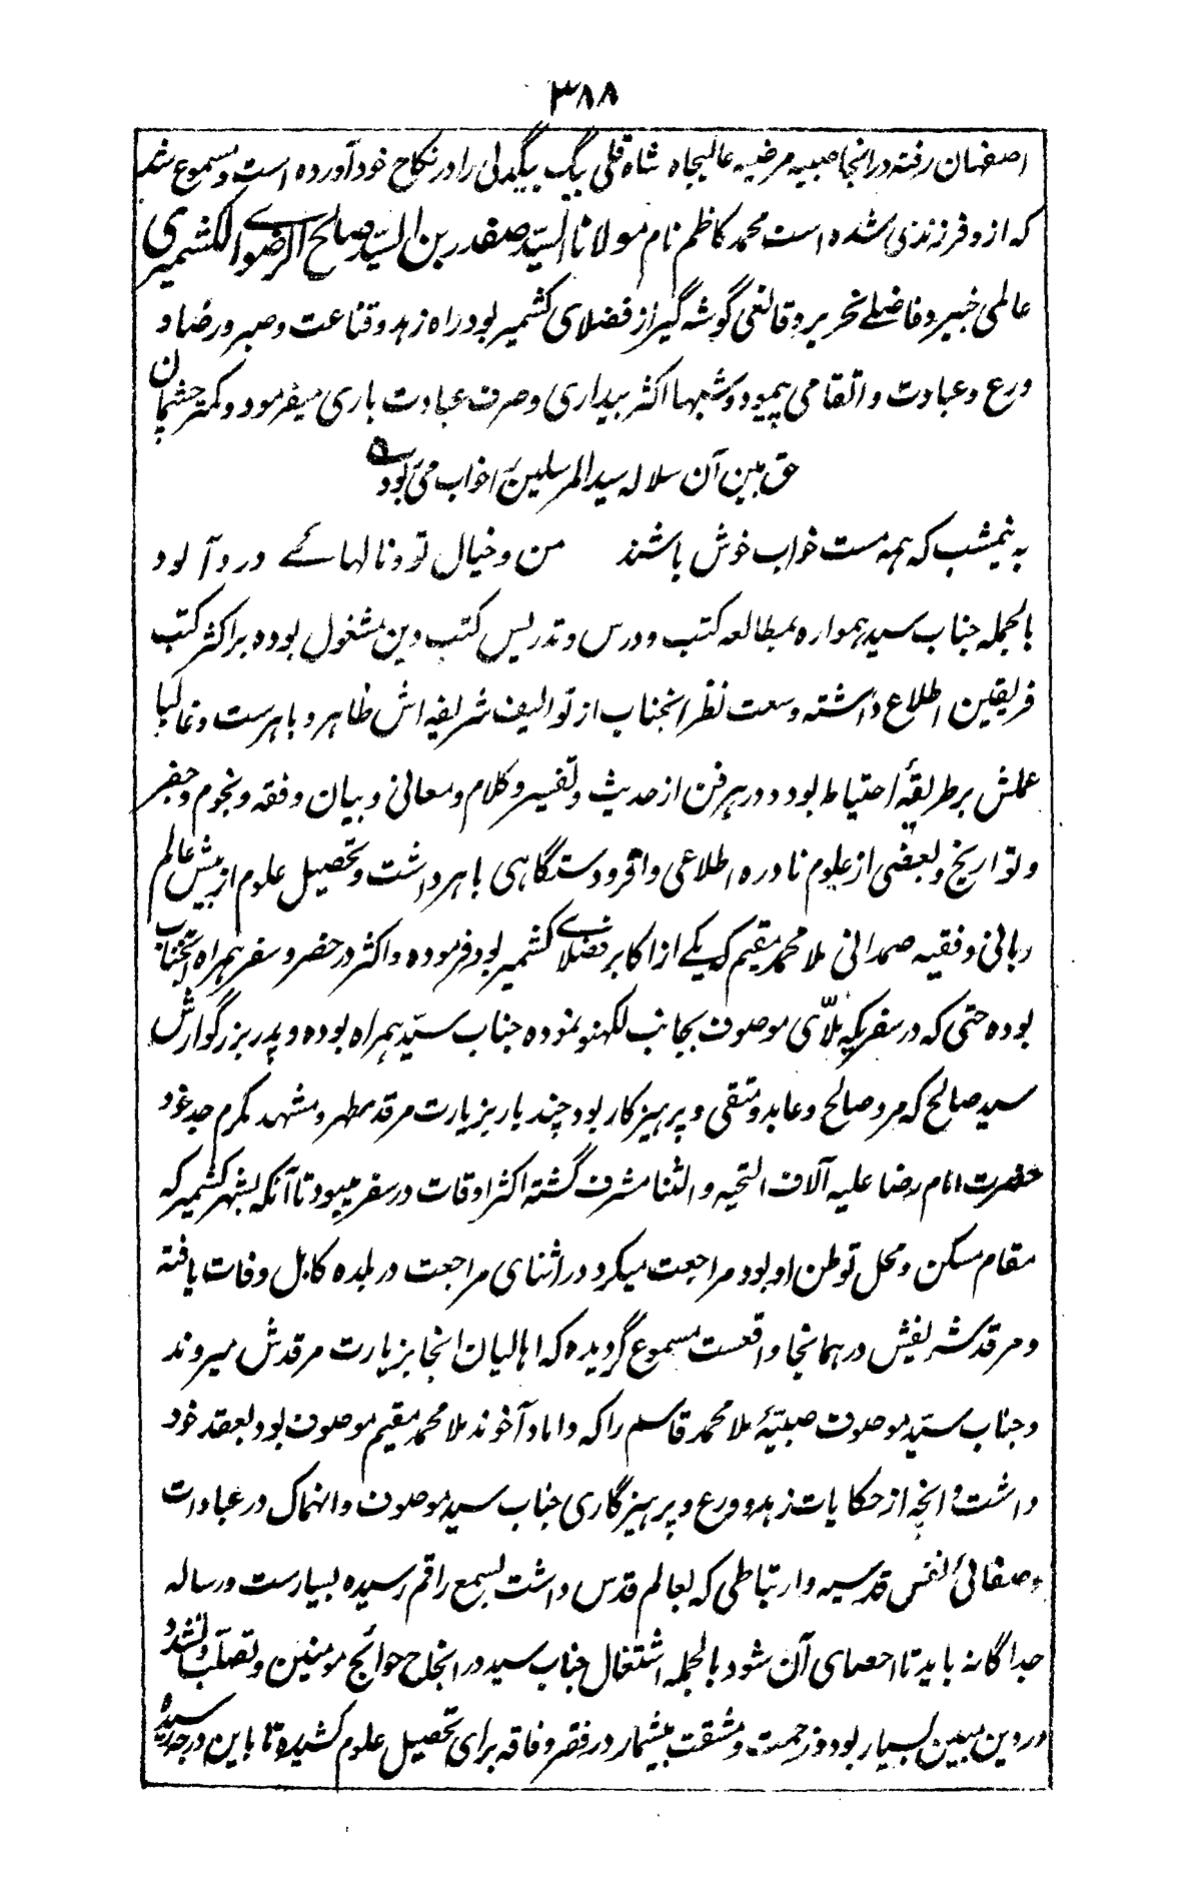 ۳۸۸
اصفهان رفته در انجا صبیه مرضیه عالیجاه شاه قلی بیگ بیگدلی را در نکاح خود آورده است و مسموع شد
که ازو فرزندی شده است محمد کاظم نام مولانا السید صفدر بن السید صالح الرضوی الکشمیری
عالمی خبیر و فاضلے نحریر و قانعی گوشه گیر از فضلای کشمیر بود راه زهد و قناعت و صبر و رضا و
ورع و عبادت و اتقا می پیمود و شبها اکثر بیداری و صرف عبادت باری میفرمود و کمتر چشمان
حق بین آن سلاله سید المرسلین اخواب می آلودے
به نیمشب که همه مست خواب خوش باشند من و خیال تو و نالهائے درد آلود
بالجمله جناب سید همواره بمطالعه کتب و درس و تدریس کتب دین مشغول بوده بر اکثر کتب
فریقین اطلاع داشته وسعت نظر انجناب از توالیف شریفه اش ظاهر و باهرست و غالبا
عملش بر طریقهٔ احتیاط بود و در هر فن از حدیث و تفسیر و کلام و معانی و بیان و فقه و نجوم و جفر
و تواریخ و بعضی از علوم نادره اطلاعی وافر و دستگاهی باهر داشت و تحصیل علوم از پیش عالم
ربانی و فقیه صمدانی ملا محمد مقیم که یکے از اکابر فضلاے کشمیر بود فرموده و اکثر در حضر و سفر همراه آنجناب
بوده حتی که در سفریکه ملّای موصوف بجانب لکهنو نموده جناب سیّد همراه بوده و پدر بزرگوارش
سید صالح که مرد صالح و عابد و متقی و پرهیزکار بود چند بار بزیارت مرقد مطهر و مشهد مکرم جد خود
حضرت امام رضا علیه آلاف التحیه و الثنا مشرف گشته اکثر اوقات در سفر میبود تا آنکه بشهر کشمیر که
مقام مسکن و محل توطن او بود مراجعت میکرد در اثنای مراجعت در بلده کابل وفات یافته
و مرقد شریفش در همانجا واقعست مسموع گردیده که اهالیان انجا بزیارت مرقدش میروند
و جناب سیّد موصوف صبیّهٔ ملا محمد قاسم را که داماد آخوند ملا محمد مقیم موصوف بود بعقد خود
داشت و انچه از حکایات زهد و ورع و پرهیزگاری جناب سید موصوف و انهماک در عبادات
و صفائی نفس قدسیه و ارتباطی که بعالم قدس داشت بسمع راقم رسیده بسیارست و رساله
جداگانه باید تا احصای آن شود بالجمله اشتغال جناب سید در انجاح حوائج مومنین و تصلّب و تشدد
در دین مبین بسیار بود و زحمت و مشقت بیشمار در فقر و فاقه برای تحصیل علوم کشیده تا باین درجه رسیده